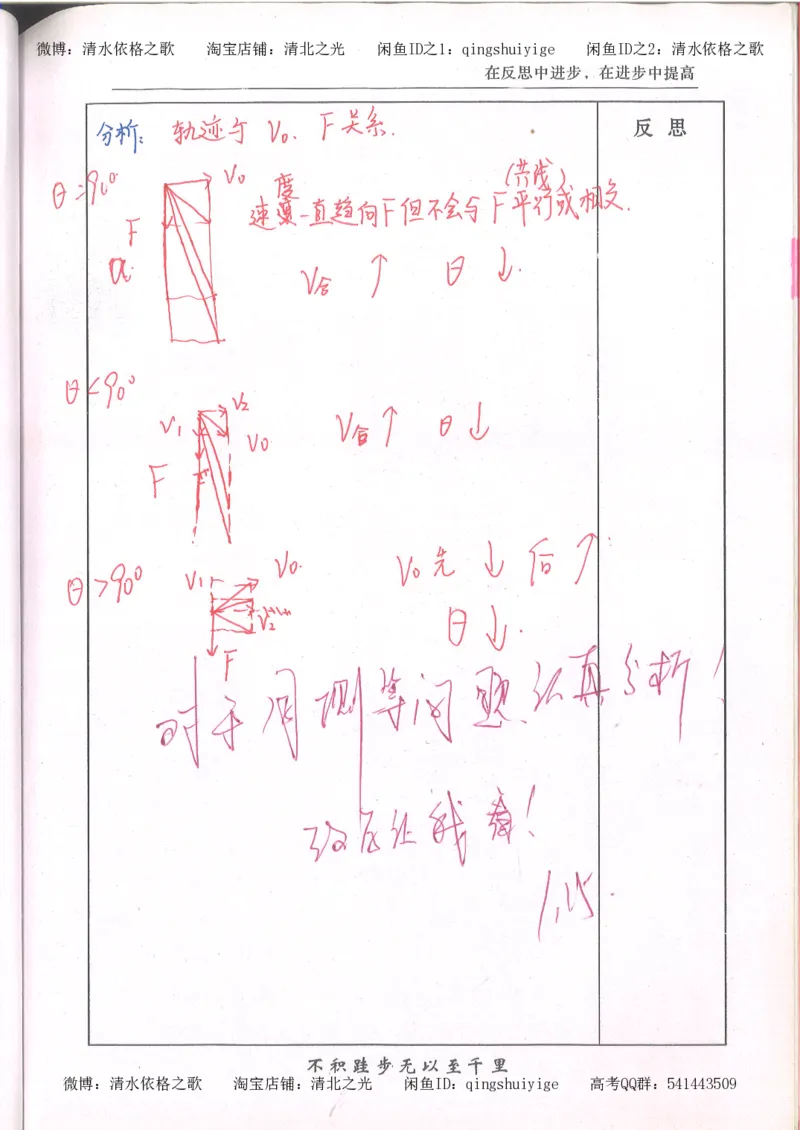 微博：清水依格之歌 淘宝店铺：清北之光 闲鱼ID之1：qingshuiyige 闲鱼ID之2：清水依格之歌
在反思中进步，在进步中提高
反思
分析：轨迹与 V₀. F关系.
θ=90°
V₀
F
a
(共线)
速度一直趋向F但不会与F平行或相交.
V合↑ θ↓.
θ<90°
V₁ V₂
V₀
F
V合↑ θ↓
θ>90°
V₁ V₀.
V₂
F
V₀先↓后↑.
θ↓.
对于周测等问题,认真分析!
1.15.
不积跬步无以至千里
微博：清水依格之歌 淘宝店铺：清北之光 闲鱼ID：qingshuiyige 高考QQ群：541443509